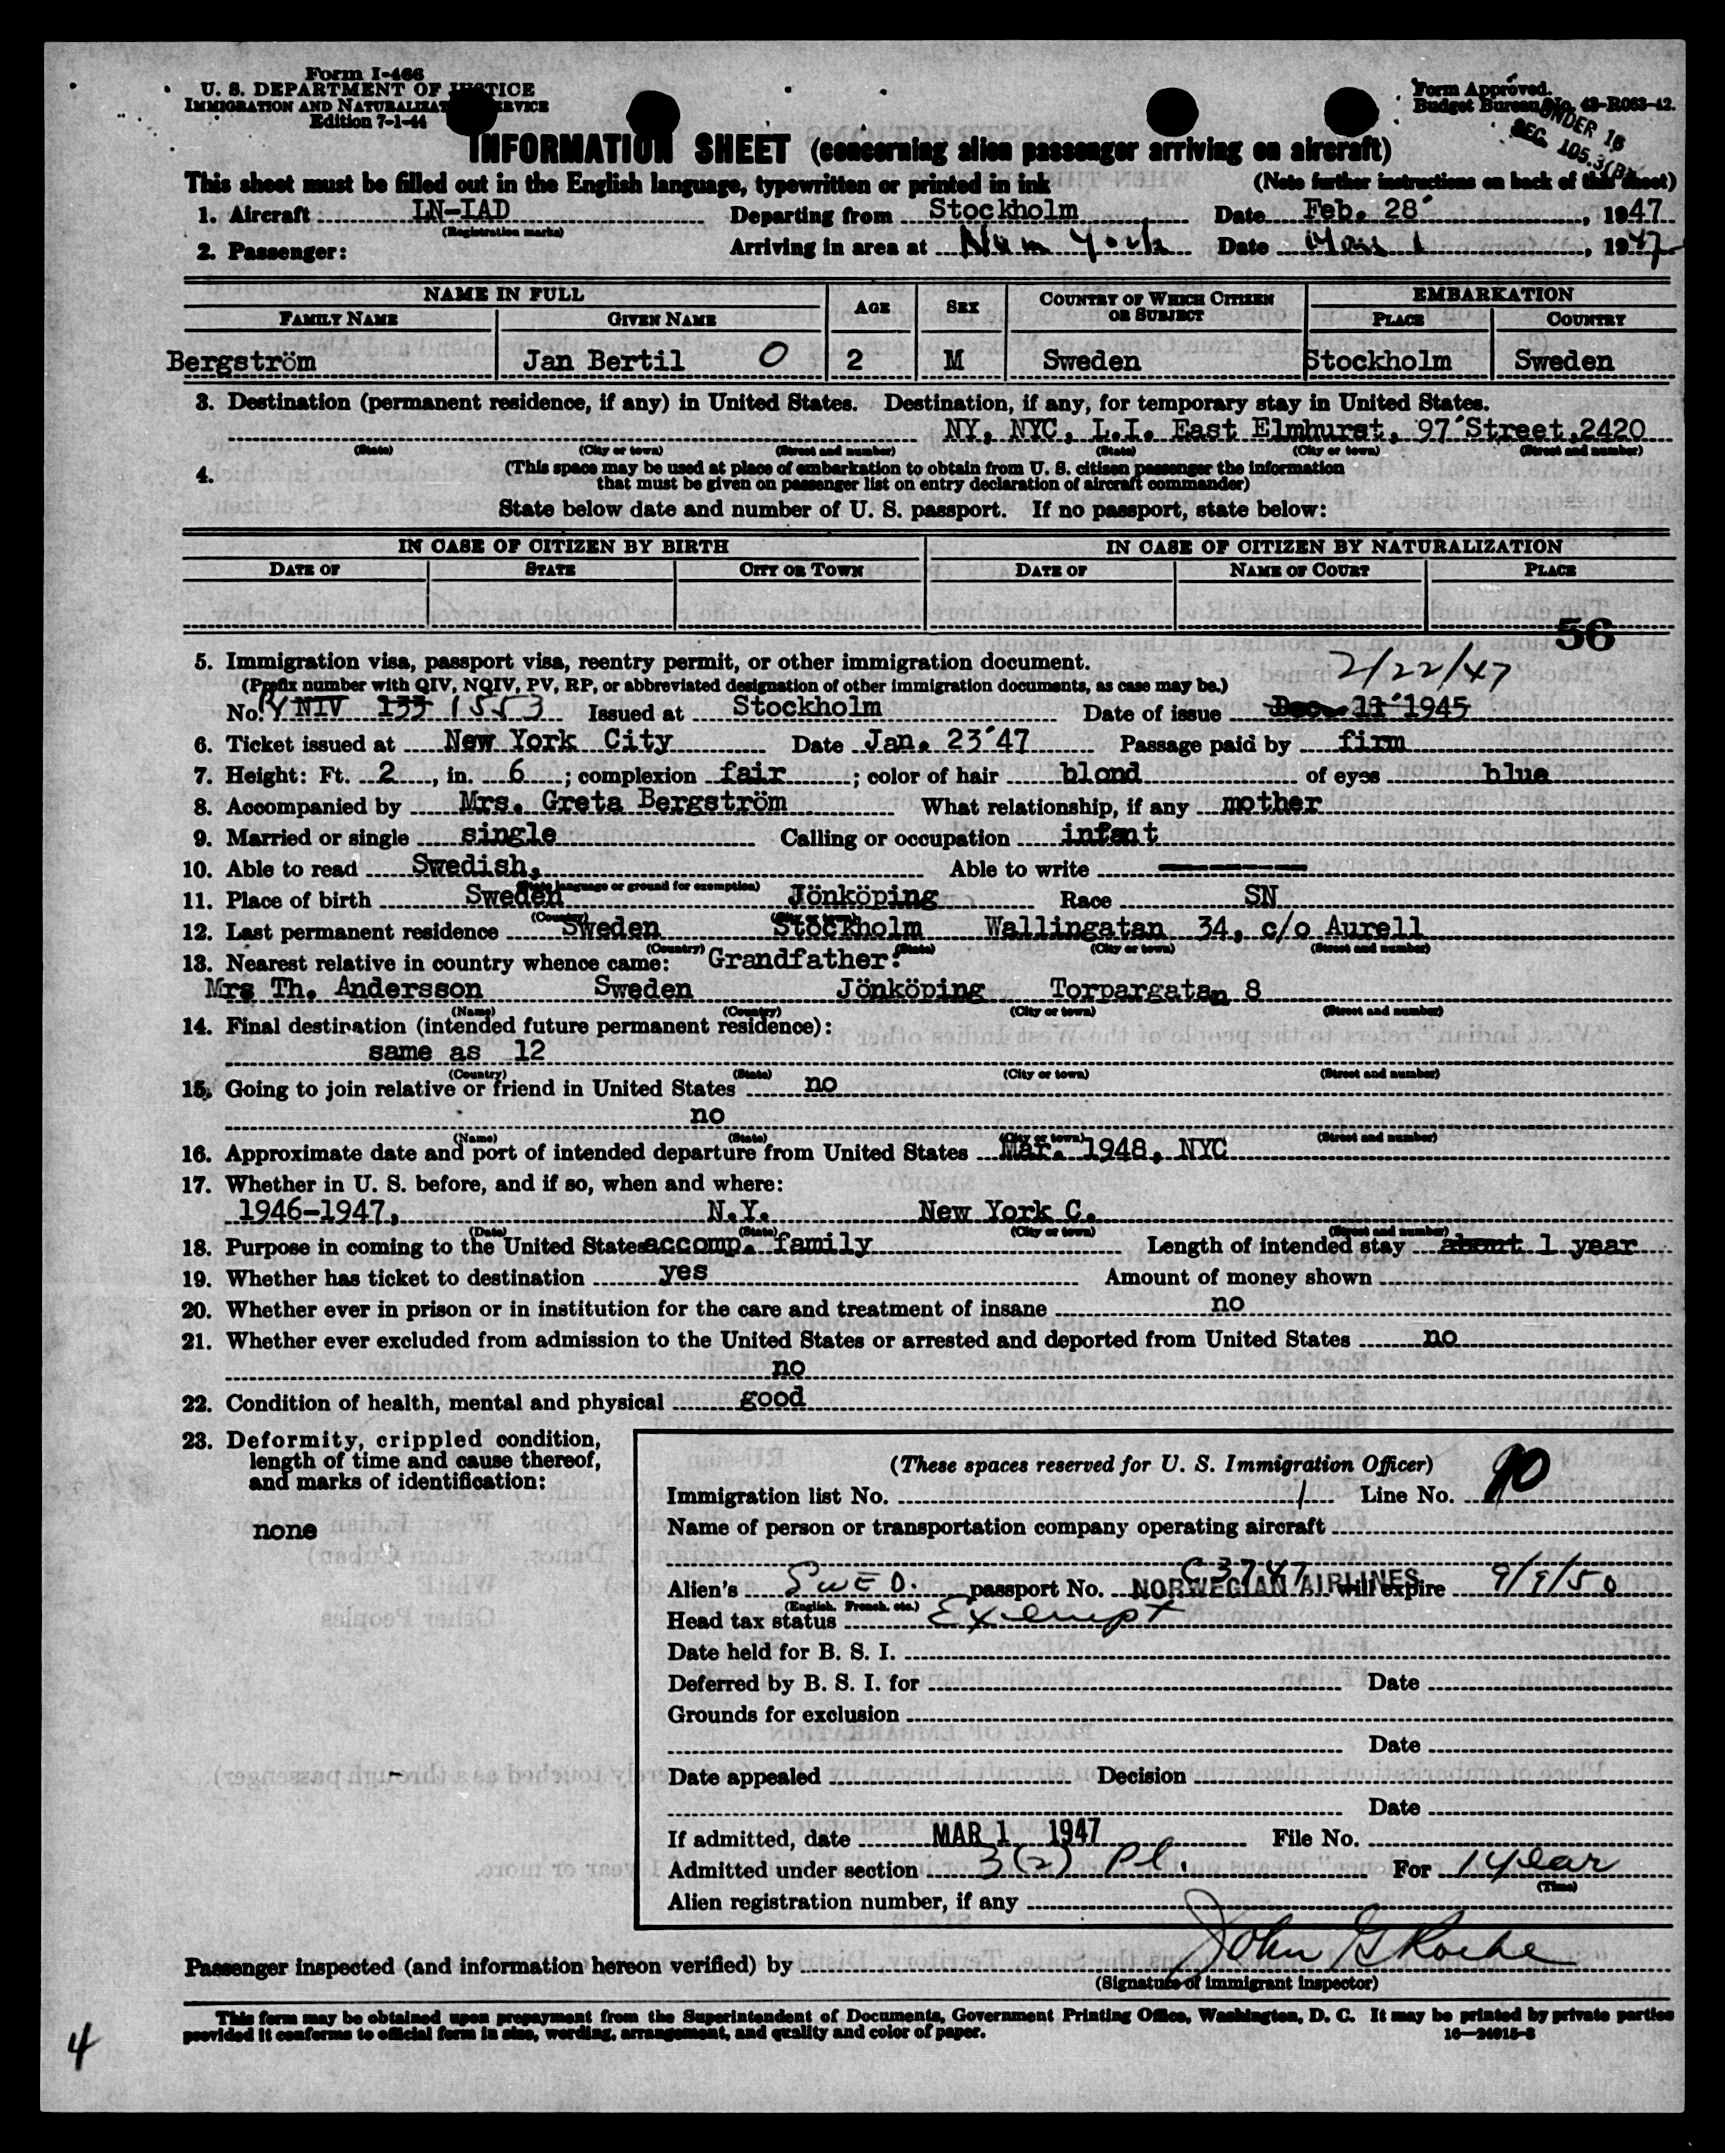 Form I-466
U. S. DEPARTMENT OF JUSTICE
IMMIGRATION AND NATURALIZATION SERVICE
Edition 7-1-44
Form Approved.
Budget Bureau No. 43-R063-42.
UNDER 16
SEC. 105.3(B)
INFORMATION SHEET (concerning alien passenger arriving on aircraft)
This sheet must be filled out in the English language, typewritten or printed in ink (Note further instructions on back of this sheet)
1. Aircraft LN-IAD Departing from Stockholm Date Feb. 28, 1947
(Registration marks)
2. Passenger: Arriving in area at New York Date Mar 1, 1947
NAME IN FULL AGE SEX COUNTRY OF WHICH CITIZEN OR SUBJECT EMBARKATION
FAMILY NAME GIVEN NAME PLACE COUNTRY
Bergström Jan Bertil 0 2 M Sweden Stockholm Sweden
3. Destination (permanent residence, if any) in United States. Destination, if any, for temporary stay in United States.
NY, NYC, L.I. East Elmhurst, 97´Street,2420
(State) (City or town) (Street and number) (State) (City or town) (Street and number)
4. (This space may be used at place of embarkation to obtain from U. S. citizen passenger the information
that must be given on passenger list on entry declaration of aircraft commander)
State below date and number of U. S. passport. If no passport, state below:
IN CASE OF CITIZEN BY BIRTH IN CASE OF CITIZEN BY NATURALIZATION
DATE OF STATE CITY OR TOWN DATE OF NAME OF COURT PLACE
56
5. Immigration visa, passport visa, reentry permit, or other immigration document. 2/22/47
(Prefix number with QIV, NQIV, PV, RP, or abbreviated designation of other immigration documents, as case may be.)
No. V NIV 133 1553 Issued at Stockholm Date of issue Dec. 11´1945
6. Ticket issued at New York City Date Jan. 23´47 Passage paid by firm
7. Height: Ft. 2, in. 6; complexion fair; color of hair blond of eyes blue
8. Accompanied by Mrs. Greta Bergström What relationship, if any mother
9. Married or single single Calling or occupation infant
10. Able to read Swedish, Able to write
(State language or ground for exemption)
11. Place of birth Sweden Jönköping Race SN
(Country) (City or town)
12. Last permanent residence Sweden Stockholm Wallingatan 34, c/o Aurell
(Country) (State) (City or town) (Street and number)
13. Nearest relative in country whence came: Grandfather:
Mrs Th. Andersson Sweden Jönköping Torpargatan 8
(Name) (Country) (City or town) (Street and number)
14. Final destination (intended future permanent residence):
same as 12
(Country) (State) (City or town) (Street and number)
15. Going to join relative or friend in United States no
no
(Name) (State) (City or town) (Street and number)
16. Approximate date and port of intended departure from United States Mar. 1948, NYC
17. Whether in U. S. before, and if so, when and where:
1946-1947, N.Y. New York C.
(Date) (State) (City or town) (Street and number)
18. Purpose in coming to the United States accomp. family Length of intended stay about 1 year
19. Whether has ticket to destination yes Amount of money shown
20. Whether ever in prison or in institution for the care and treatment of insane no
21. Whether ever excluded from admission to the United States or arrested and deported from United States no
no
22. Condition of health, mental and physical good
23. Deformity, crippled condition,
length of time and cause thereof,
and marks of identification:
none
(These spaces reserved for U. S. Immigration Officer)
Immigration list No. 1 Line No. 10
Name of person or transportation company operating aircraft
NORWEGIAN AIRLINES
Alien's SWED. passport No. C3747 will expire 9/9/50
(English, French, etc.)
Head tax status Exempt
Date held for B. S. I.
Deferred by B. S. I. for Date
Grounds for exclusion
Date
Date appealed Decision
Date
If admitted, date MAR 1 1947 File No.
Admitted under section 3(2) Pl. For 1 year
(Time)
Alien registration number, if any
Passenger inspected (and information hereon verified) by John G Roche
(Signature of immigrant inspector)
This form may be obtained upon prepayment from the Superintendent of Documents, Government Printing Office, Washington, D. C. It may be printed by private parties
provided it conforms to official form in size, wording, arrangement, and quality and color of paper. 16—24015-3
4